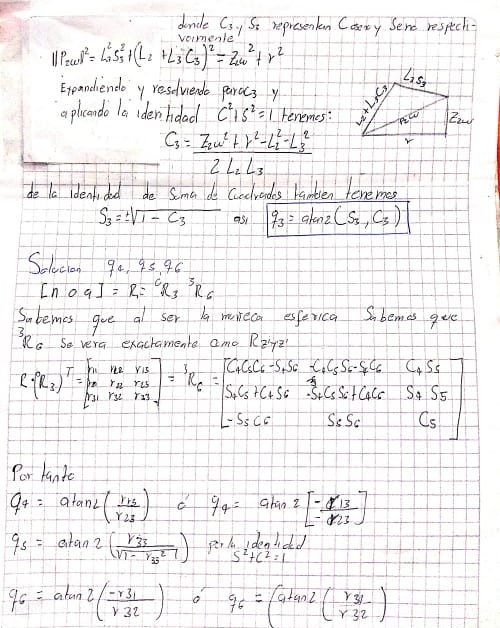 donde C3 y S3 representan Coseno y Seno respecti-
vamente
||P2w||² = L3²S3² + (L2 + L3C3)² = Z2w² + r²
Expandiendo y resolviendo para C3 y
aplicando la identidad C²+S²=1 tenemos:
C3 = (Z2w² + r² - L2² - L3²) / (2 L2 L3)
L3S3
L2+L3C3
P2w
Z2w
r
de la Identidad de Suma de Cuadrados tambien tenemos
S3 = ±√(1 - C3) así q3 = atan2(S3, C3)
Solucion q4, q5, q6
[n o a] = R = ⁰R3 ³R6
Sabemos que al ser la muñeca esferica Sabemos que
³R6 Se vera exactamente como Rz'y'z'
R·(R3)ᵀ = [r11 r12 r13; r21 r22 r23; r31 r32 r33] = ³R6 = [C4C5C6-S4S6 -C4C5S6-S4C6 C4S5; S4C5C6+C4S6 -S4C5S6+C4C6 S4S5; -S5C6 S5S6 C5]
Por tanto
q4 = atan2(r13/r23) ó q4 = atan2[-r13/-r23]
q5 = atan2(r33/√(1-r33²)) por la identidad
S²+C²=1
q6 = atan2(-r31/r32) ó q6 = (atan2(r31/r32)